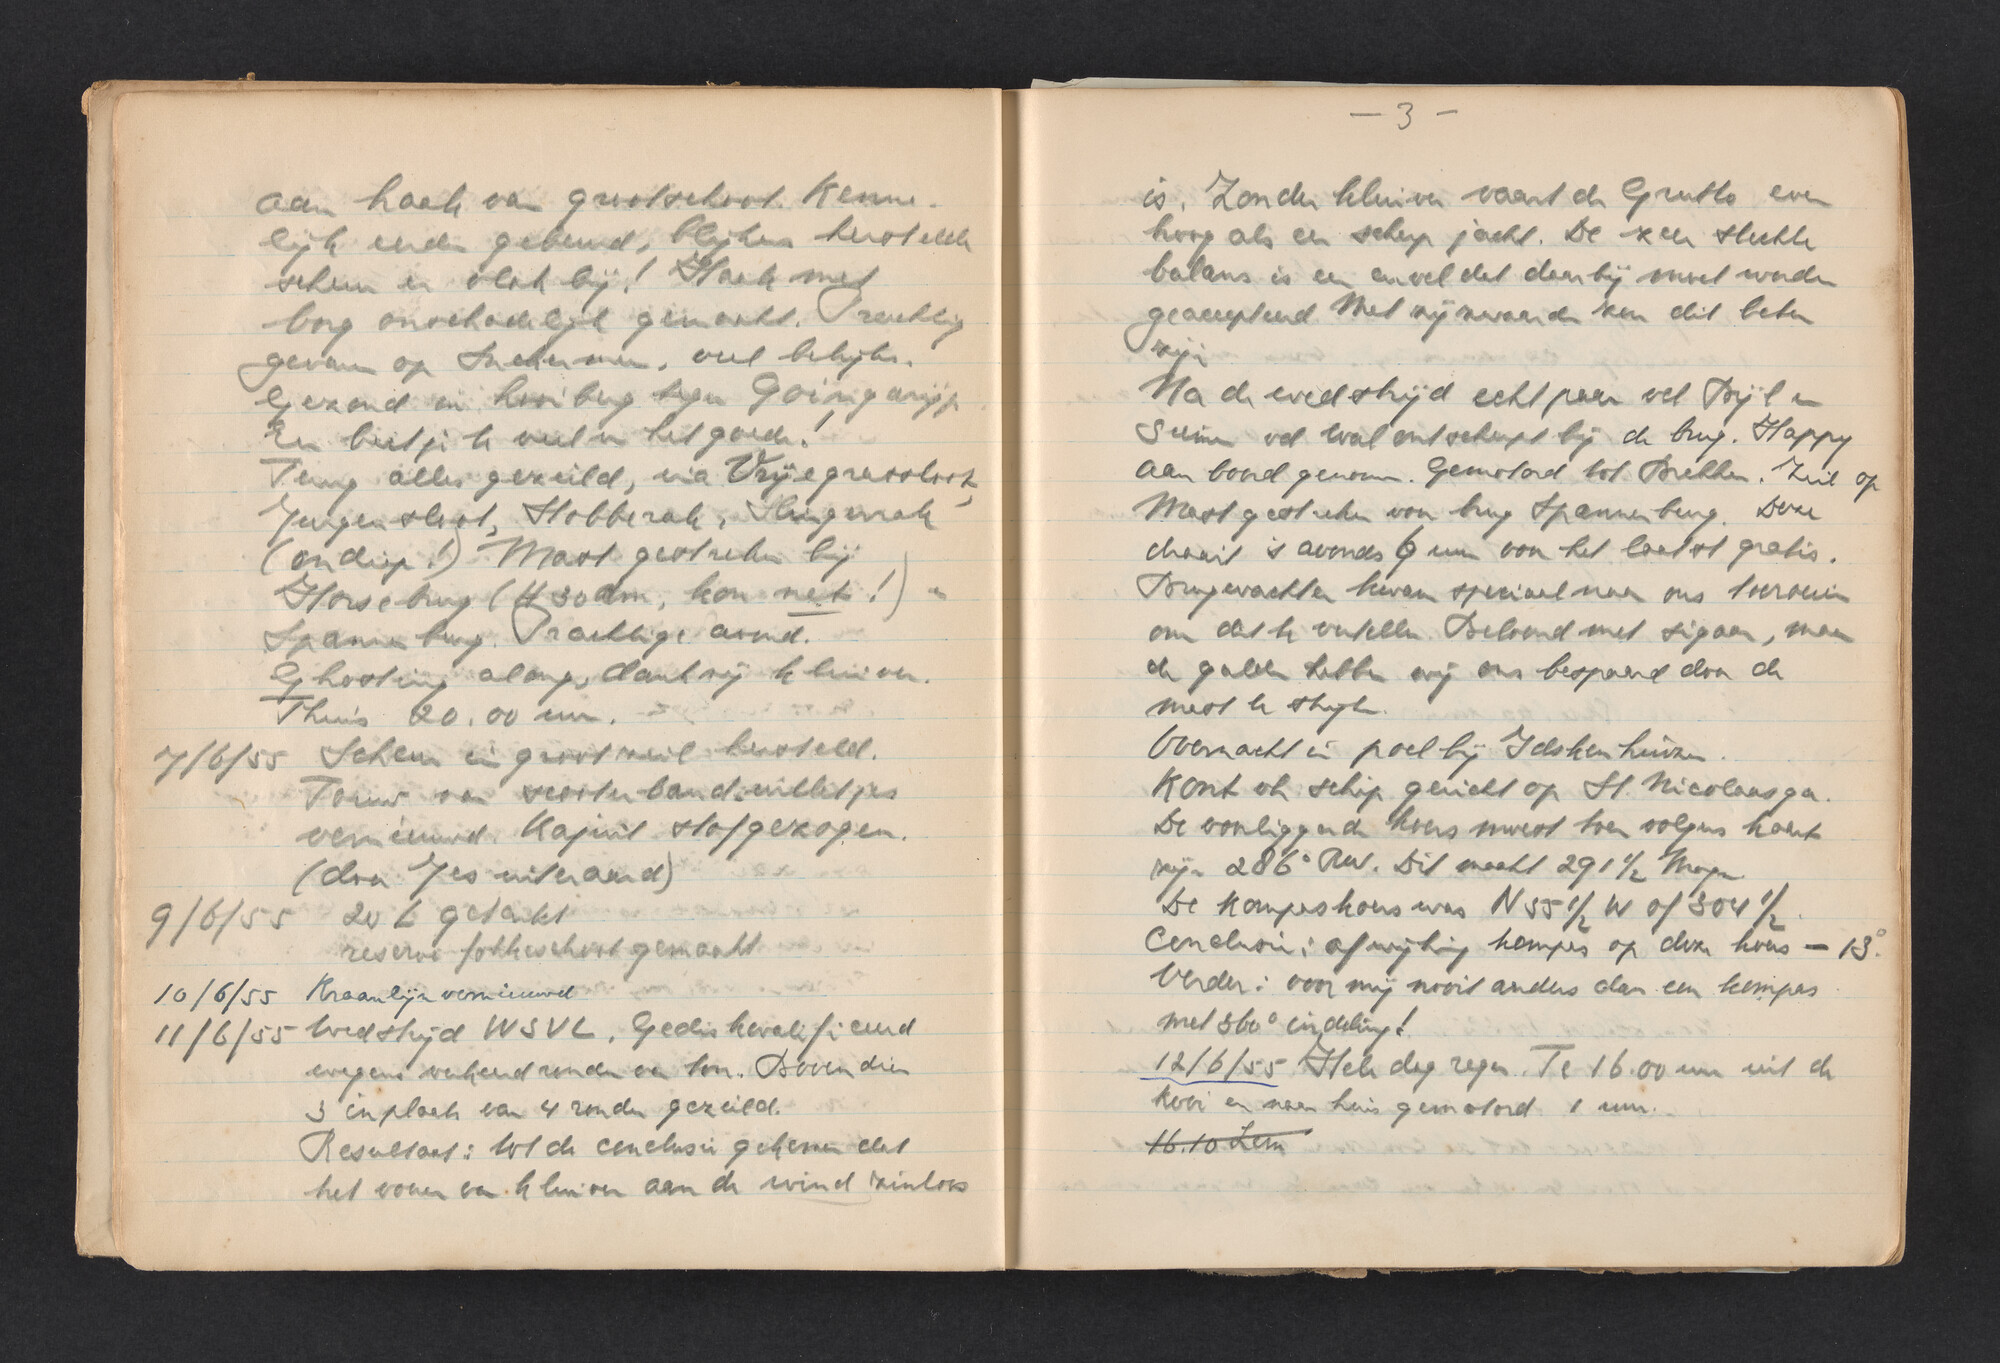 aan haak van grootschoot. Kenne-
lijk eerder gebeurd, blijkens herstelde
scheur er vlak bij! Haak met
borg onschadelijk gemaakt. Prachtig
gevaren op Snekermeer, veel bekijks.
Gezond in hooiberg tegen Goingarijp
Een beetje te veel van het goede!
Terug alles gezeild, via Vrijegrassloot,
Jurgensloot, Stobberak, Slingerrak
(ondiep!) Mast gestreken bij
Horsebrug (H 30 dm, kon net!) en
Spannenburg. Prachtige avond.
Ghosting along, dankzij kluiver.
Thuis 20.00 uur.
7/6/55 Scheur in grootzeil hersteld.
Touw van scooterbandwilletjes
vernieuwd. Kajuit stofgezogen.
(door Jes uiteraard)
9/6/55 20 L getankt
reserve fokkeschoot gemaakt
10/6/55 Kraanlijn vernieuwd
11/6/55 Wedstrijd WSVL. Gediskwalificeerd
wegens verkeerd ronden van ton. Bovendien
3 in plaats van 4 ronden gezeild.
Resultaat: tot de conclusie gekomen dat
het voeren van kluiver aan de wind zinloos
— 3 —
is. Zonder kluiver vaart de Grutto even
hoog als een scherp jacht. De zeer slechte
balans is een euvel dat daarbij moet worden
geaccepteerd. Met zijzwaarden kan dit beter
zijn
Na de wedstrijd echtpaar vd Bijl en
vd Wal ontscheept bij de brug. Happy
aan boord genomen. Gemotord tot Brekken. Zeil op
Mast gestreken voor brug Spannenburg. Deze
draait 's avonds 6 uur voor het laatst gratis.
Brugwachter kwam speciaal naar ons toeroeien
om dat te vertellen. Beloond met sigaar, maar
de gulden hebben wij ons bespaard door de
mast te strijken.
Overnacht in poel bij Idskenhuizen.
Kont vh schip gericht op St. Nicolaasga.
De voorliggende koers moest toen volgens kaart
zijn 286° RW. Dit maakt 291 1/2 Magn.
De kompaskoers was N 55 1/2 W of 304 1/2.
Conclusie: afwijking kompas op deze koers — 13°.
Verder: voor mij nooit anders dan een kompas
met 360° indeling!
12/6/55 Hele dag regen. Te 16.00 uur uit de
kooi en naar huis gemotord 1 uur.
16.10 Lem